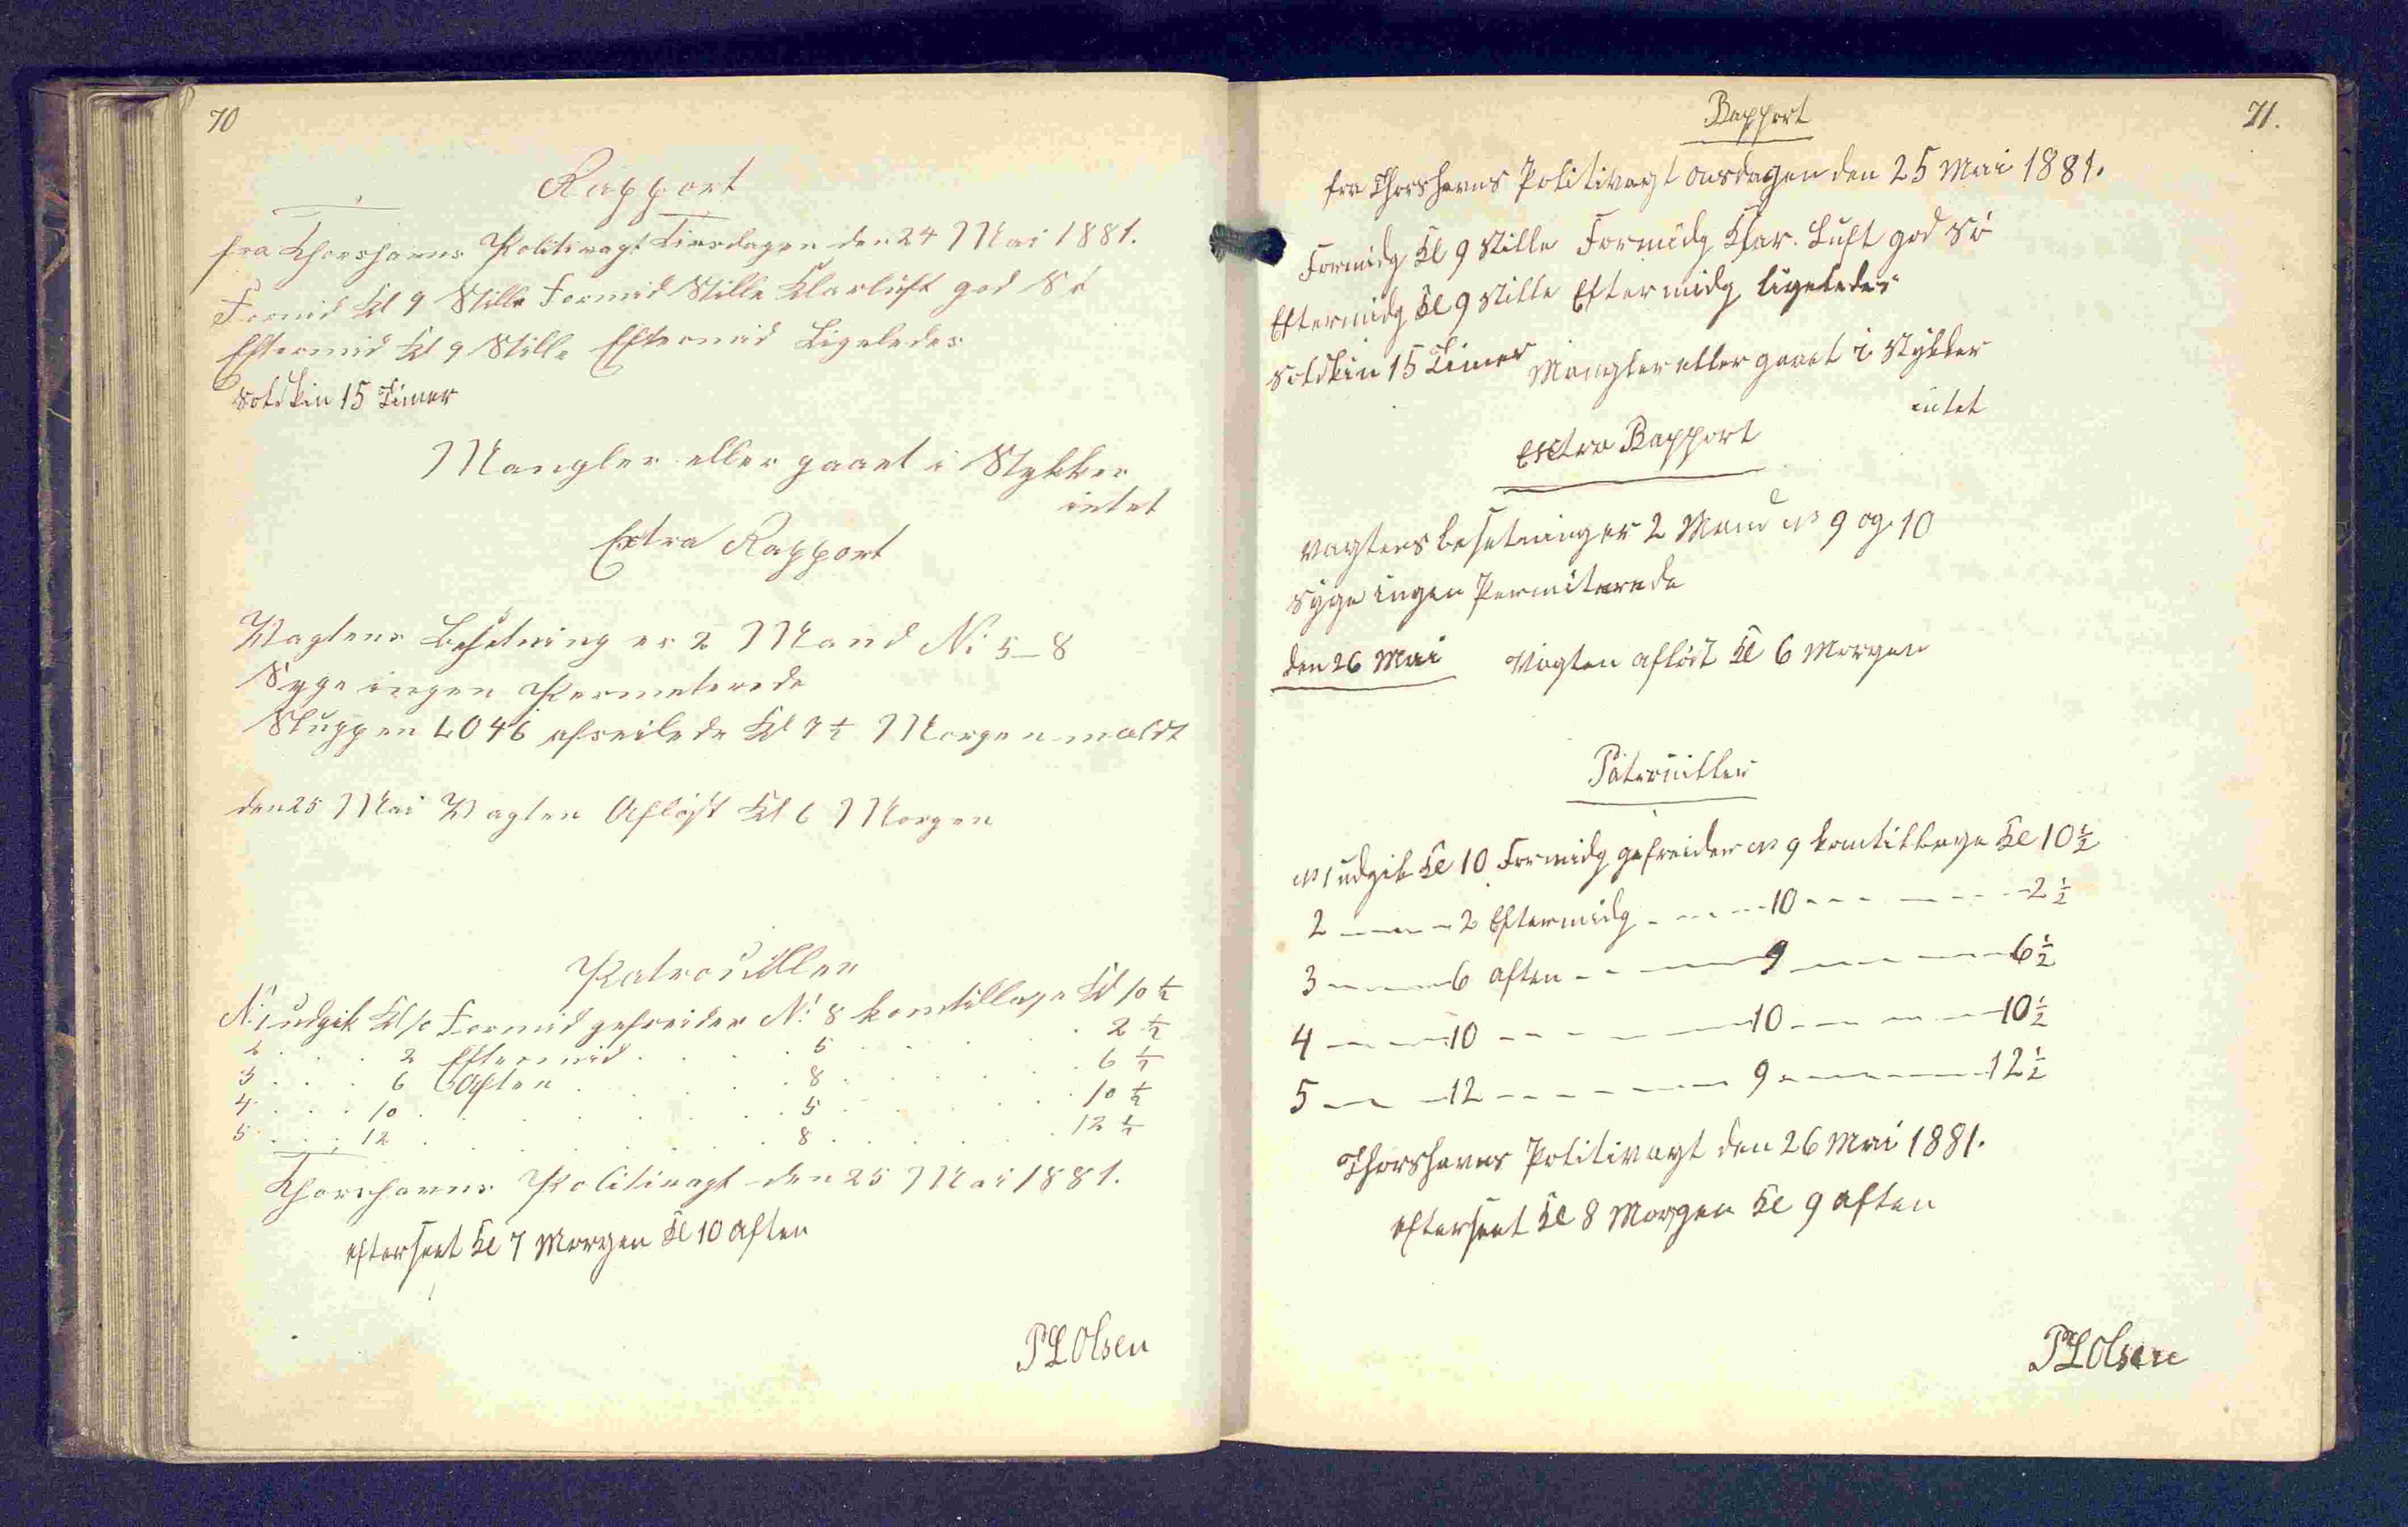 70
Rapport
fra Thorshavns Politivagt Tirsdagen den 24 Mai 1881.
Formid Kl 9 Stille Formid Stille Klarluft god Sö
Eftermid Kl 9 Stille Eftermid Ligeledes
Solskin 15 Timer
Mangler eller gaaet i Stykker
intet
Extra Rapport
Vagtens Besetning er 2 Mand No 5_8
Syge ingen Permeterede
Sluppen LO46 afseilede Kl 7½ Morgen
den 25 Mai Vagten Afløst Kl 6 Morgen
Patrouiller
No 1 udgik Kl 10 Formid gefreider No 8 kom tilbage Kl 10½
2 . . . 2 Eftermid . . . . 5 . . . . . . 2½
3 . . . 6 Aften . . . . . 8 . . . . . . 6½
4 . . . 10 . . . . . . . 5 . . . . . . 10½
5 . . . 12 . . . . . . . 8 . . . . . . 12½
Thorshavns Politivagt den 25 Mai 1881.
efterseet Kl 7 Morgen Kl 10 Aften
P L Olsen
71.
Rapport
fra Thorshavns Politivagt onsdagen den 25 Mai 1881.
Formidg Kl 9 Stille Formidg Klar. Luft god Sö
Eftermidg Kl 9 Stille Eftermidg ligeledes
Solskin 15 Timer Mangler eller gaaet i Stykker
intet
Extra Rapport
Vagtens besetning er 2 Mand No 9 og 10
Syge ingen Permiterede
den 26 Mai Vagten afløst Kl 6 Morgen
Patrouiller
No 1 udgik Kl 10 Formidg gefreider No 9 kom tilbage Kl 10½
2 — — — 2 Eftermidg - - - - 10 - - - - - - - 2½
3 — — — 6 aften - - — — 9 — — — — 6½
4 — — — 10 - - - — — 10 — — — — 10½
5 — — — 12 - - - — — 9 - — — — — 12½
Thorshavns Politivagt den 26 Mai 1881.
efterseet Kl 8 Morgen Kl 9 aften
P L Olsen